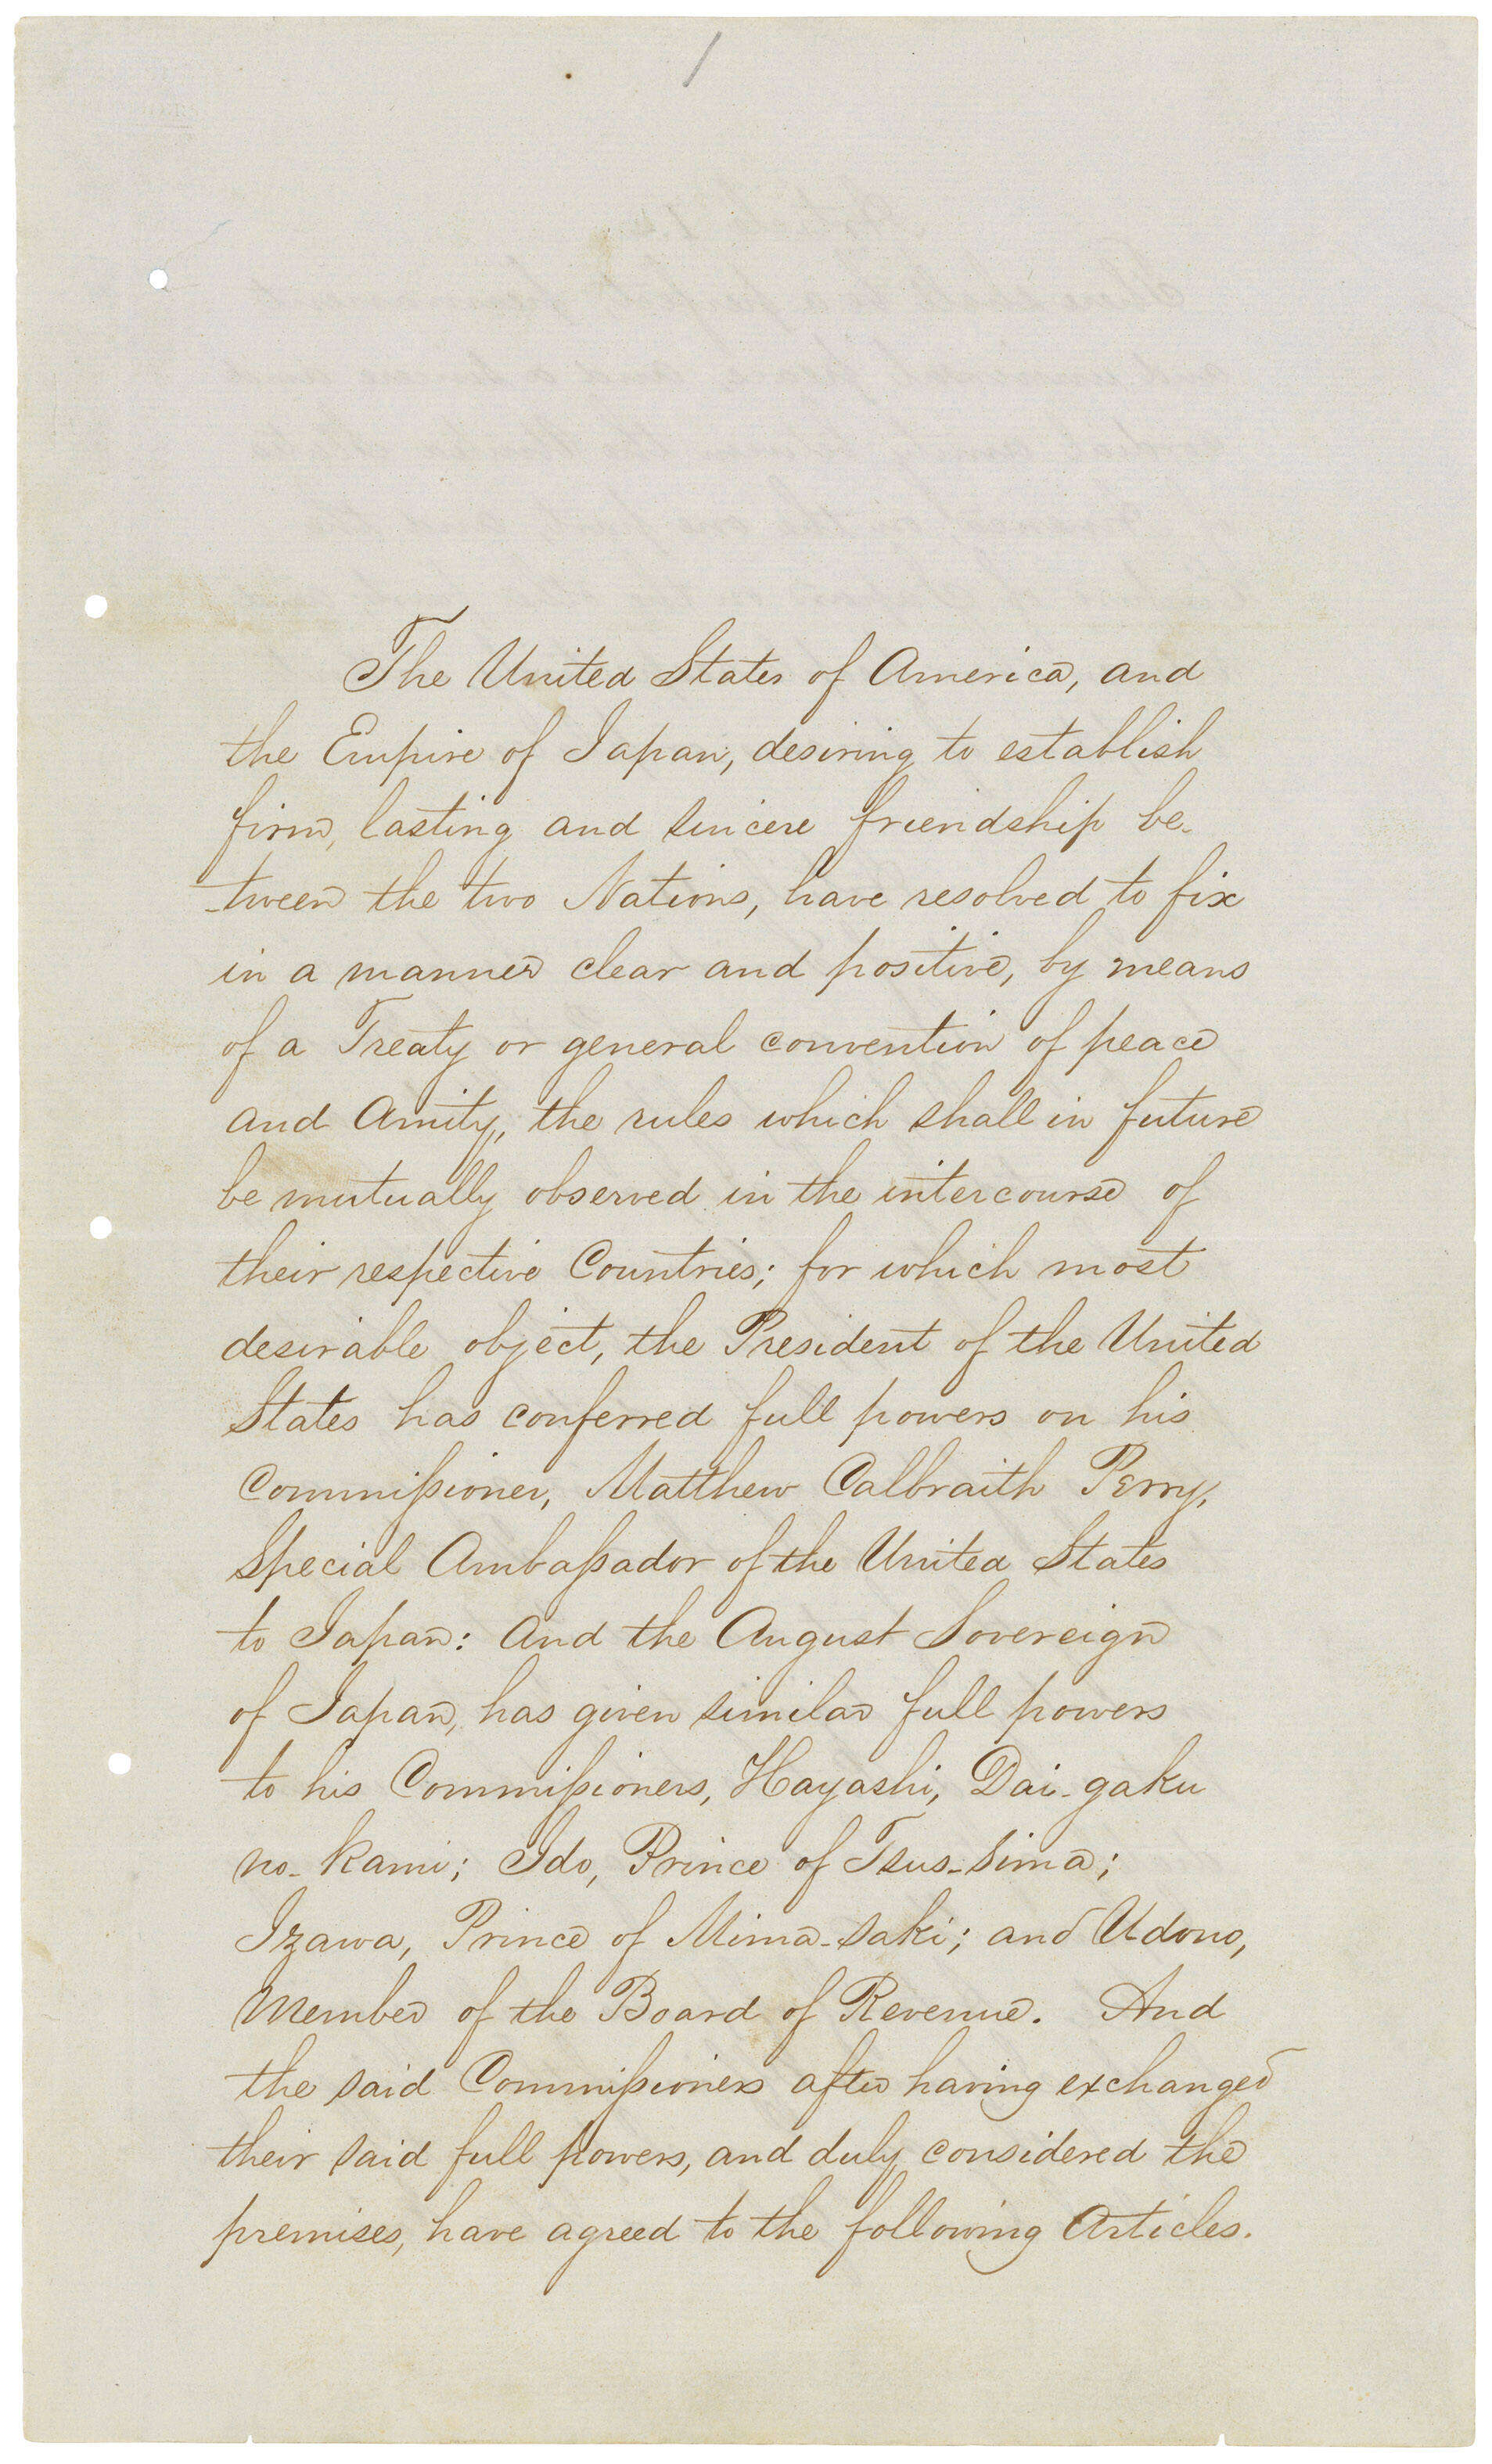 /
The United States of America, and
the Empire of Japan, desiring to establish
firm, lasting and sincere friendship be-
-tween the two Nations, have resolved to fix
in a manner clear and positive, by means
of a Treaty or general convention of peace
and Amity, the rules which shall in future
be mutually observed in the intercourse of
their respective Countries; for which most
desirable object, the President of the United
States has conferred full powers on his
Commissioner, Matthew Calbraith Perry,
Special Ambassador of the United States
to Japan: And the August Sovereign
of Japan, has given similar full powers
to his Commissioners, Hayashi, Dai-gaku
no-kami; Ido, Prince of Tsus-sima;
Izawa, Prince of Mima-saki; and Udono,
Member of the Board of Revenue. And
the said Commissioners after having exchanged
their said full powers, and duly considered the
premises, have agreed to the following Articles.